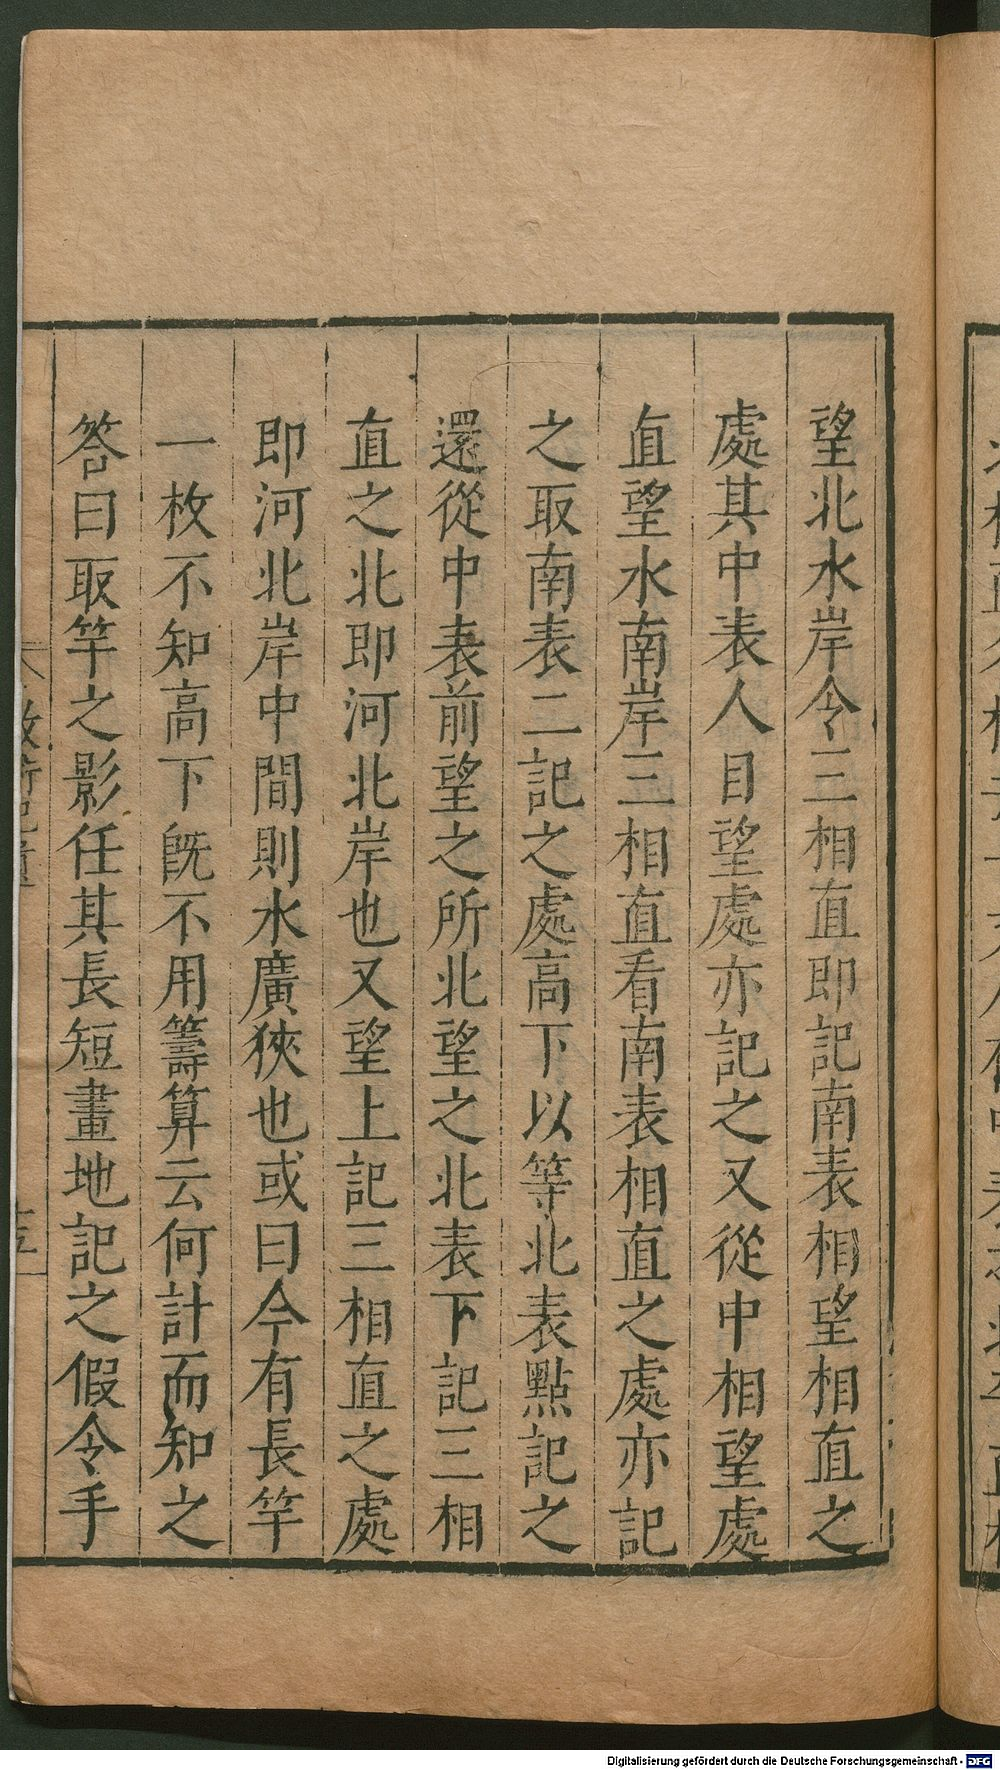 望北水岸令三相直即記南表相望相直之
處其中表人目望處亦記之又從中相望處
直望水南岸三相直看南表相直之處亦記
之取南表二記之處高下以等北表點記之
還從中表前望之所北望之北表下記三相
直之北即河北岸也又望上記三相直之處
即河北岸中間則水廣狹也或曰今有長竿
一枚不知高下既不用籌算云何計而知之
答曰取竿之影任其長短畫地記之假令手
Digitalisierung gefördert durch die Deutsche Forschungsgemeinschaft - DFG